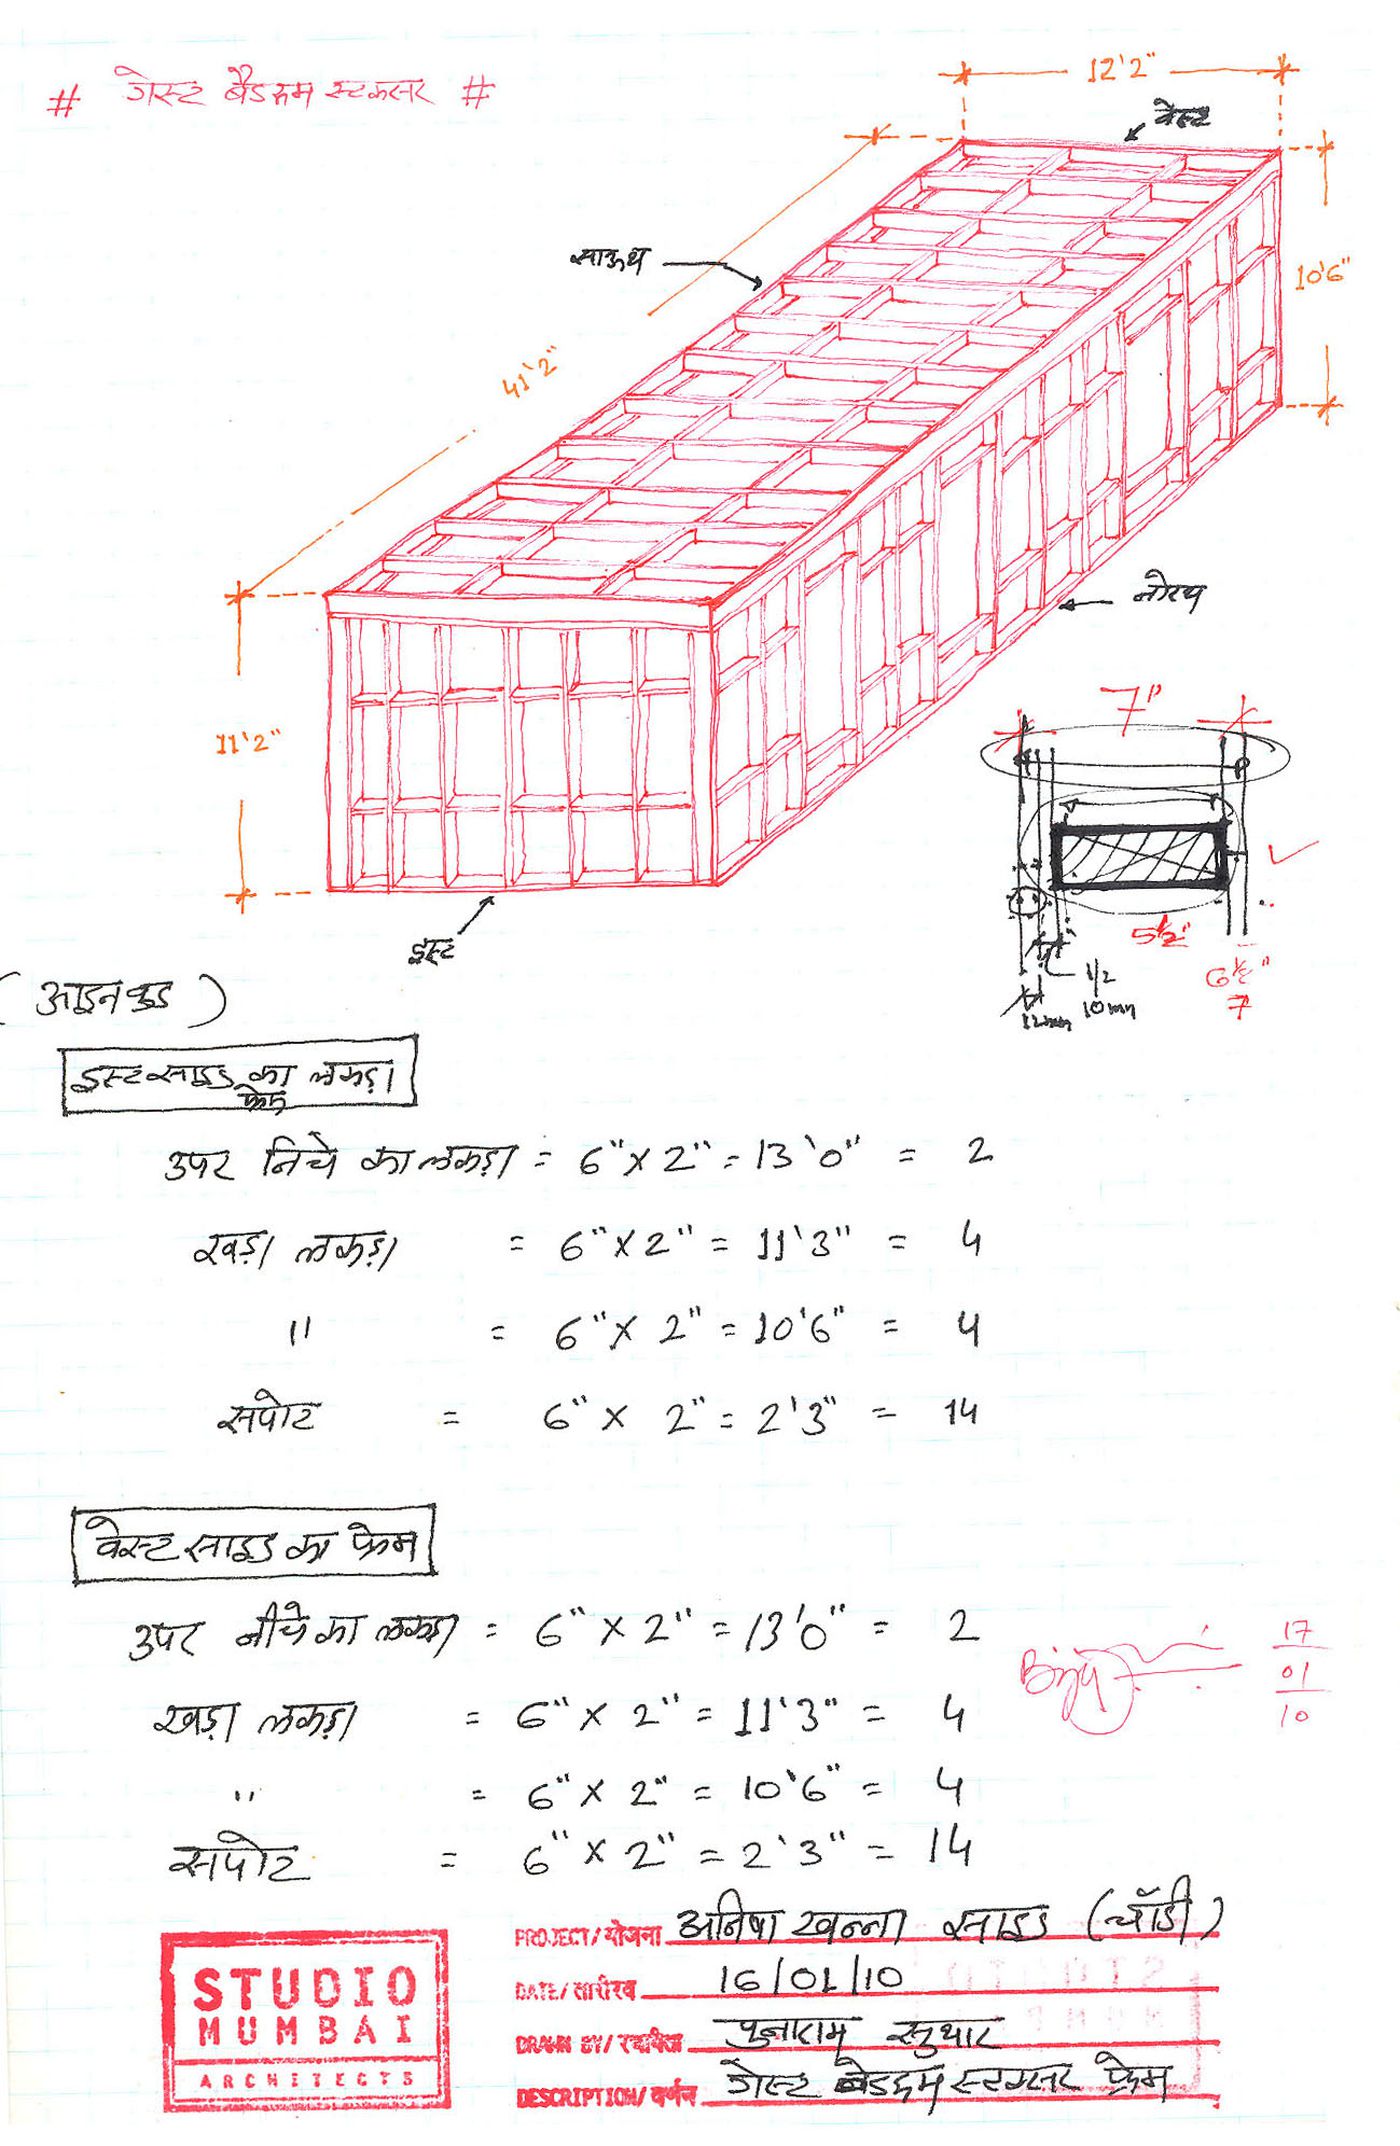 # गेस्ट बैडरूम स्टकसर #
12'2"
वेस्ट
साऊथ
10'6"
41'2"
नोरथ
11'2"
7"
इस्ट
5½"
6½"
7
1/2
10mm
12mm
(आइनवुड)
इस्ट साइड का लकड़ा
फ्रेम
उपर निचे का लकड़ा = 6" X 2" = 13'0" = 2
खड़ा लकड़ा = 6" X 2" = 11'3" = 4
" = 6" X 2" = 10'6" = 4
सपोट = 6" X 2" = 2'3" = 14
वेस्ट साइड का फ्रेम
उपर नीचे का लकड़ा = 6" X 2" = 13'0" = 2
खड़ा लकड़ा = 6" X 2" = 11'3" = 4
" = 6" X 2" = 10'6" = 4
सपोट = 6" X 2" = 2'3" = 14
17
01
10
STUDIO
MUMBAI
ARCHITECTS
PROJECT/योजना अनिषा खन्ना साइड (चॉंडी)
DATE/तारीख 16/01/10
DRAWN BY/रचयिता पुनाराम सुथार
DESCRIPTION/वर्णन गेस्ट बेडरूम स्टग्सर फ्रेम